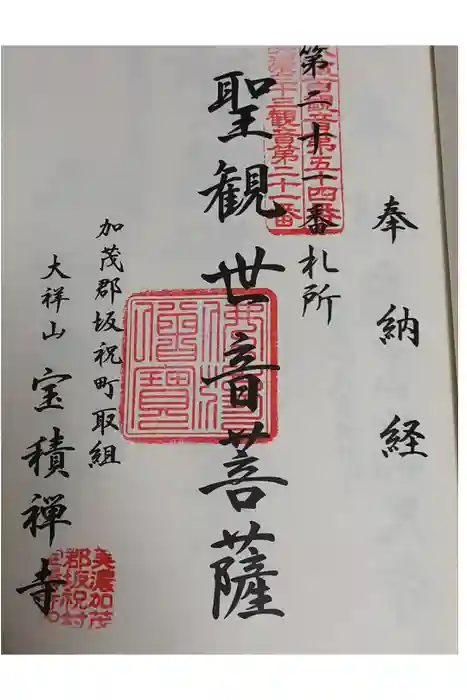 奉納経
第二十一番札所
百観音第五十四番
三十三観音第二十一番
聖観世音菩薩
佛法
僧寶
加茂郡坂祝町取組
大祥山 宝積禅寺
美濃加茂
郡坂祝村